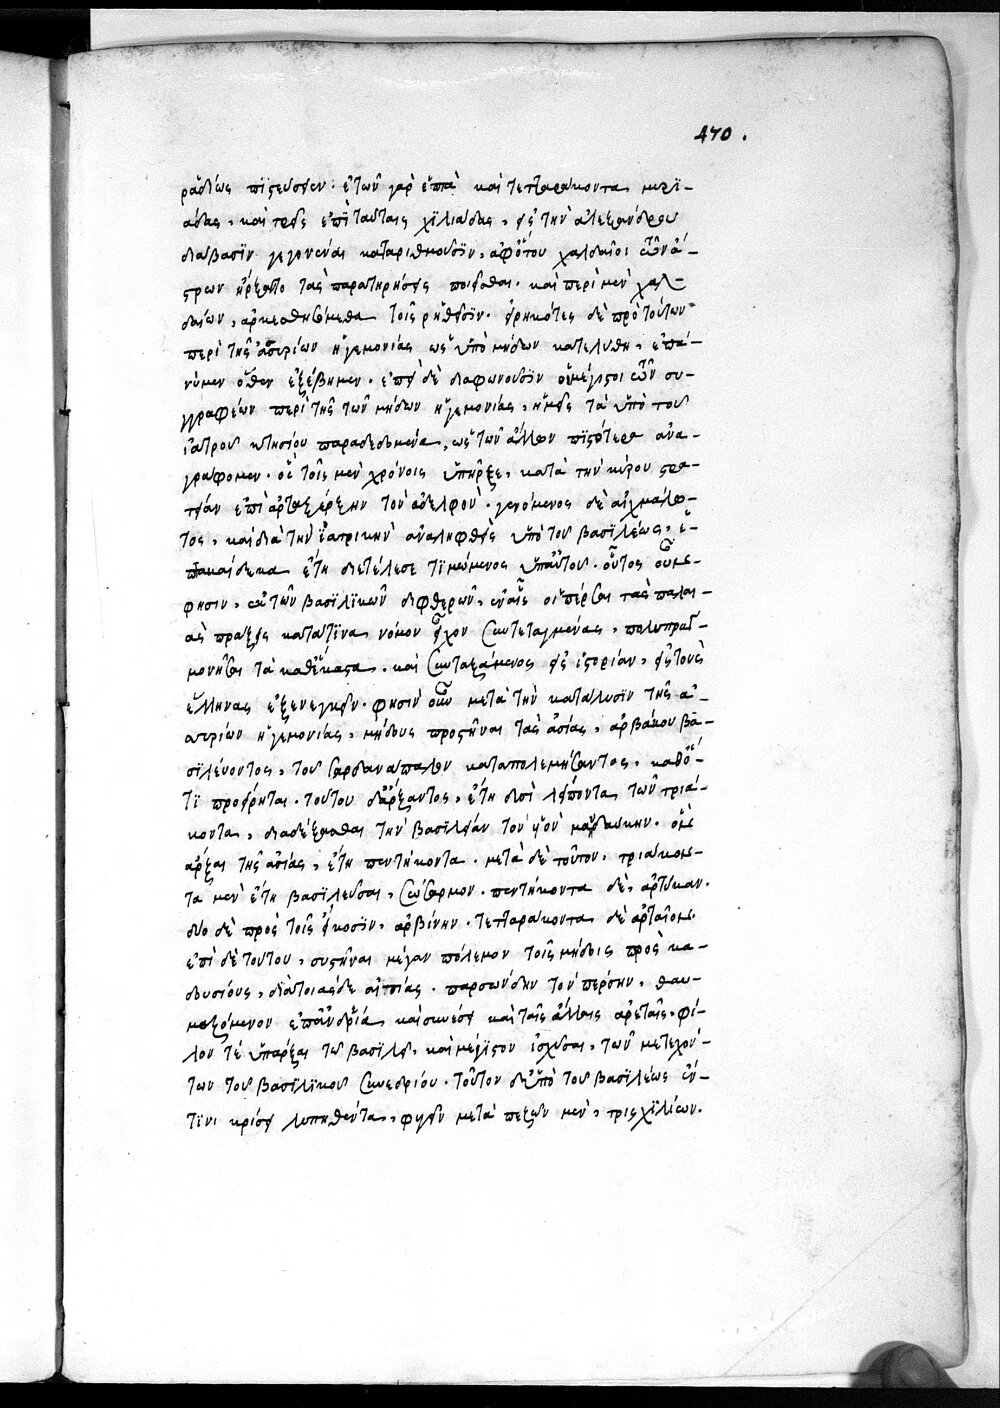 470.
ῥαδίως πιστεύσειεν· ἐτῶν γὰρ ἑπτὰ καὶ τετταράκοντα μυρι-
άδας, καὶ τρεῖς ἐπὶ ταύταις χιλιάδας, εἰς τὴν ἀλεξάνδρου
διάβασιν γεγονέναι καταριθμοῦσιν, ἀφ' ὅτου χαλδαῖοι τῶν ἄ-
στρων ἤρξαντο τὰς παρατηρήσεις ποιεῖσθαι. καὶ περὶ μὲν χαλ-
δαίων, ἀρκεσθησόμεθα τοῖς ῥηθεῖσιν. εἰρηκότες δὲ πρὸ τούτων
περὶ τῆς ἀσσυρίων ἡγεμονίας ὡς ὑπὸ μήδων κατελύθη, ἐπά-
νιμεν ὅθεν ἐξέβημεν. ἐπεὶ δὲ διαφωνοῦσιν οἱ μέγιστοι τῶν συ-
γγραφέων περὶ τῆς τῶν μήδων ἡγεμονίας, ἡμεῖς τὰ ὑπὸ τοῦ
ἰατροῦ κτησίου παραδεδομένα, ὡς τῶν ἄλλων πιστότερα ἀνα-
γράφομεν. ὃς τοῖς μὲν χρόνοις ὑπῆρξε, κατὰ τὴν κύρου στρα-
τείαν ἐπὶ ἀρταξέρξην τὸν ἀδελφὸν. γενόμενος δὲ αἰχμάλω-
τος, καὶ διὰ τὴν ἰατρικὴν ἀναληφθεὶς ὑπὸ τοῦ βασιλέως, ἑ-
πτακαίδεκα ἔτη διετέλεσε τιμώμενος ὑπ' αὐτοῦ. οὗτος οὖν
φησιν, ἐκ τῶν βασιλικῶν διφθερῶν, ἐν αἷς οἱ πέρσαι τὰς παλαι-
ὰς πράξεις κατά τινα νόμον εἶχον συντεταγμένας, πολυπραγ-
μονῆσαι τὰ καθ' ἕκαστα. καὶ συνταξάμενος εἰς ἱστορίαν, εἰς τοὺς
ἕλληνας ἐξενεγκεῖν. φησὶν οὖν μετὰ τὴν κατάλυσιν τῆς ἀ-
συρίων ἡγεμονίας, μήδους προστῆναι τὰς ἀσίας, ἀρβάκου βα-
σιλεύοντος, τοῦ σαρδανάπαλον καταπολεμήσαντος, καθό-
τι προείρηται. τούτου δ' ἄρξαντος, ἔτη δυσὶ λείποντα τῶν τριά-
κοντα, διαδέξασθαι τὴν βασιλείαν τὸν υἱὸν μαυδάκην. ὃν
ἄρξαι τῆς ἀσίας, ἔτη πεντήκοντα. μετὰ δὲ τοῦτον, τριάκον-
τα μὲν ἔτη βασιλεῦσαι, σώσαρμον. πεντήκοντα δὲ, ἀρτύκαν.
δύο δὲ πρὸς τοῖς εἴκοσιν, ἀρβίνην. τετταράκοντα δὲ ἀρταῖον.
ἐπὶ δὲ τούτου, συστῆναι μέγαν πόλεμον τοῖς μήδοις πρὸς κα-
δυσίους, διὰ τοιάσδε αἰτίας. παρσώνδην τὸν πέρσην, θαυ-
μαζόμενον ἐπ' ἀνδρείᾳ, καὶ συνέσει καὶ ταῖς ἄλλαις ἀρεταῖς, φί-
λον τὲ ὑπάρξαι τῷ βασιλεῖ, καὶ μέγιστον ἰσχῦσαι, τῶν μετεχόν-
των τοῦ βασιλικοῦ συνεδρίου. τοῦτον δ' ὑπὸ τοῦ βασιλέως ἔν-
τινι κρίσει λυπηθέντα, φυγεῖν μετὰ πεζῶν μὲν, τρισχιλίων.